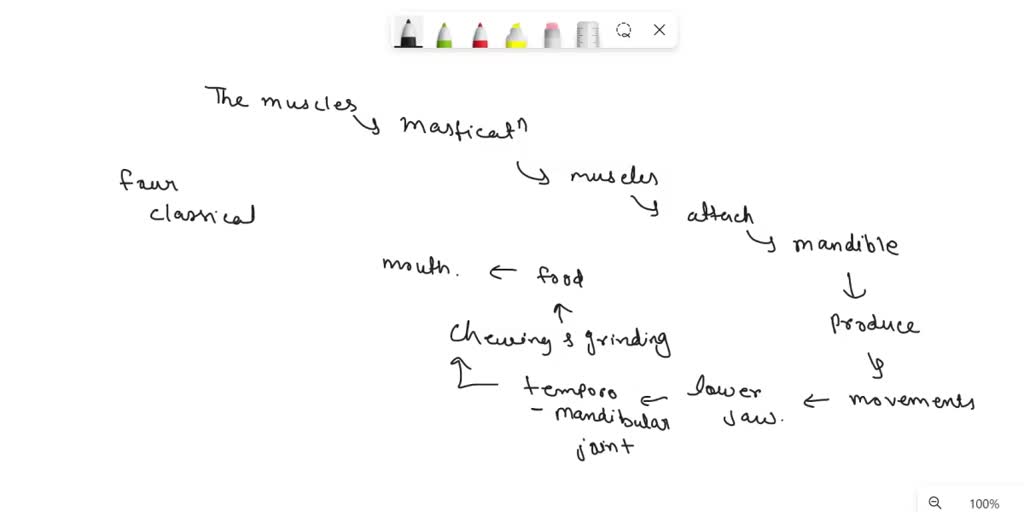 The muscles
↳ masticatⁿ
↳ muscles
↳ attach
↳ mandible
↓
produce
↳
movements
← lower jaw.
← temporo
- mandibular
joint
chewing & grinding
↑
food
← mouth.
four
classical
100%